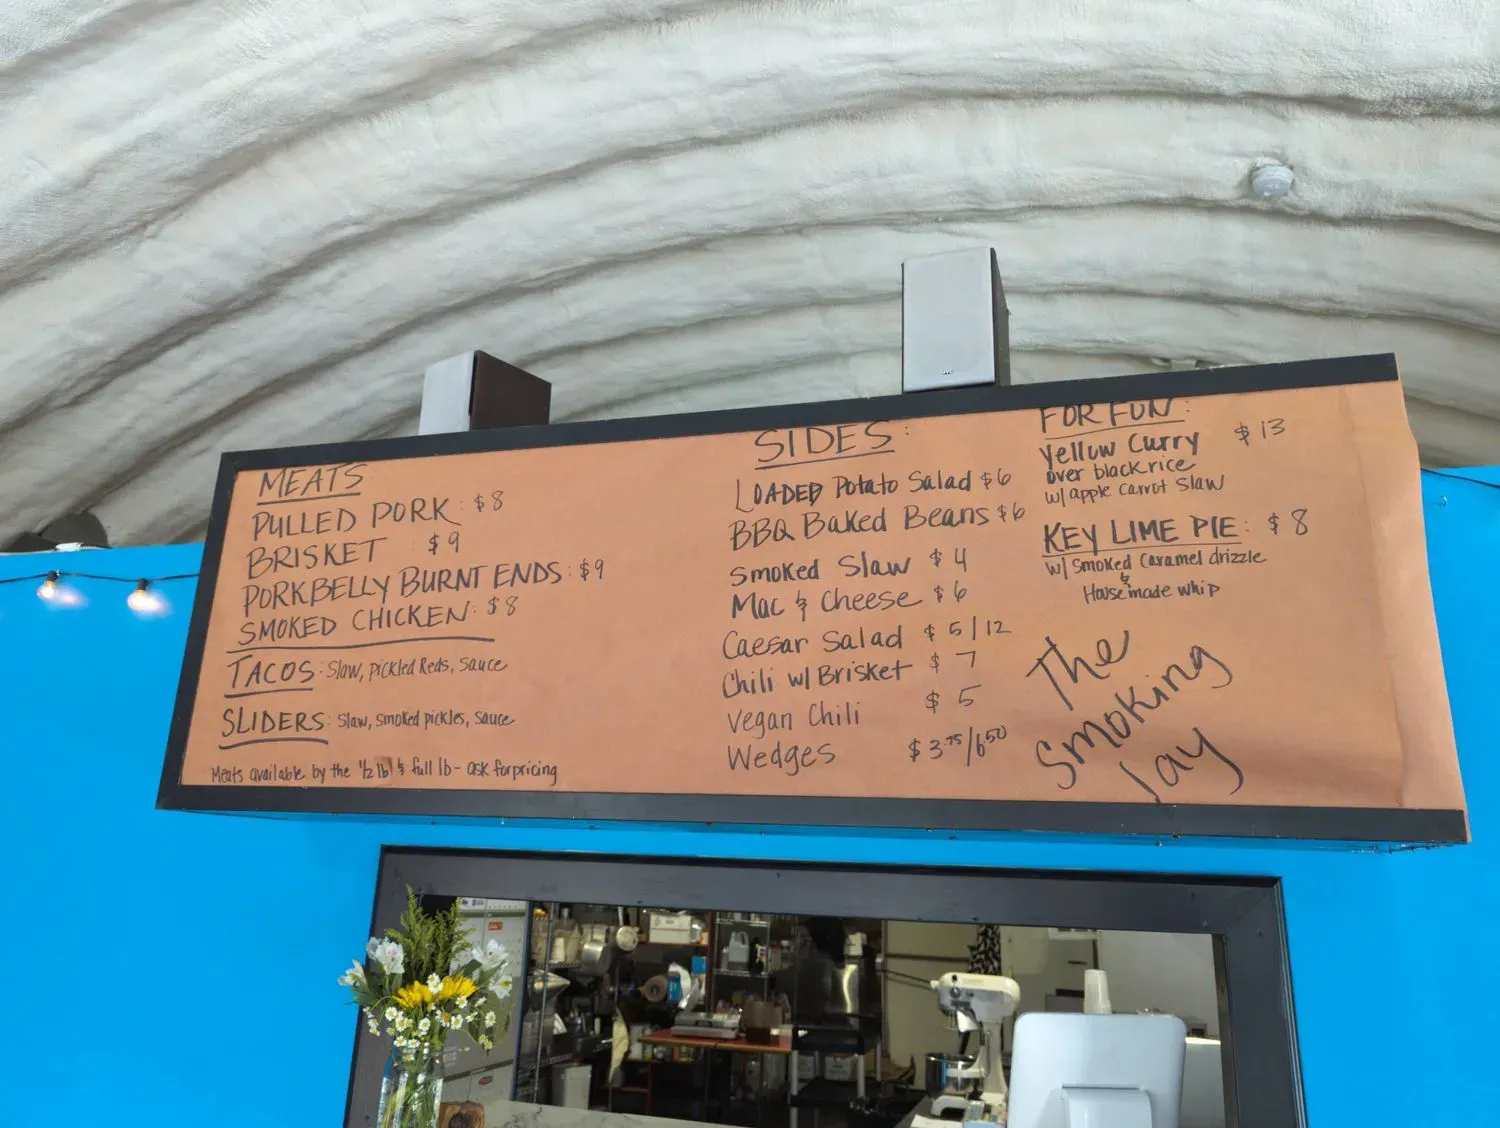 MEATS
PULLED PORK: $8
BRISKET : $9
PORKBELLY BURNT ENDS: $9
SMOKED CHICKEN: $8
TACOS: Slaw, pickled Reds, sauce
SLIDERS: slaw, smoked pickles, sauce
Meats available by the 1/2 lb & full lb - ask for pricing
SIDES:
LOADED Potato Salad $6
BBQ Baked Beans $6
Smoked Slaw $4
Mac & Cheese $6
Caesar Salad $5/12
Chili w/ Brisket $7
Vegan Chili $5
Wedges $3.75/6.50
FOR FUN:
Yellow Curry $13
over black rice
w/ apple carrot slaw
KEY LIME PIE: $8
w/ Smoked Caramel drizzle
&
House made whip
The
Smoking
Jay
JVC